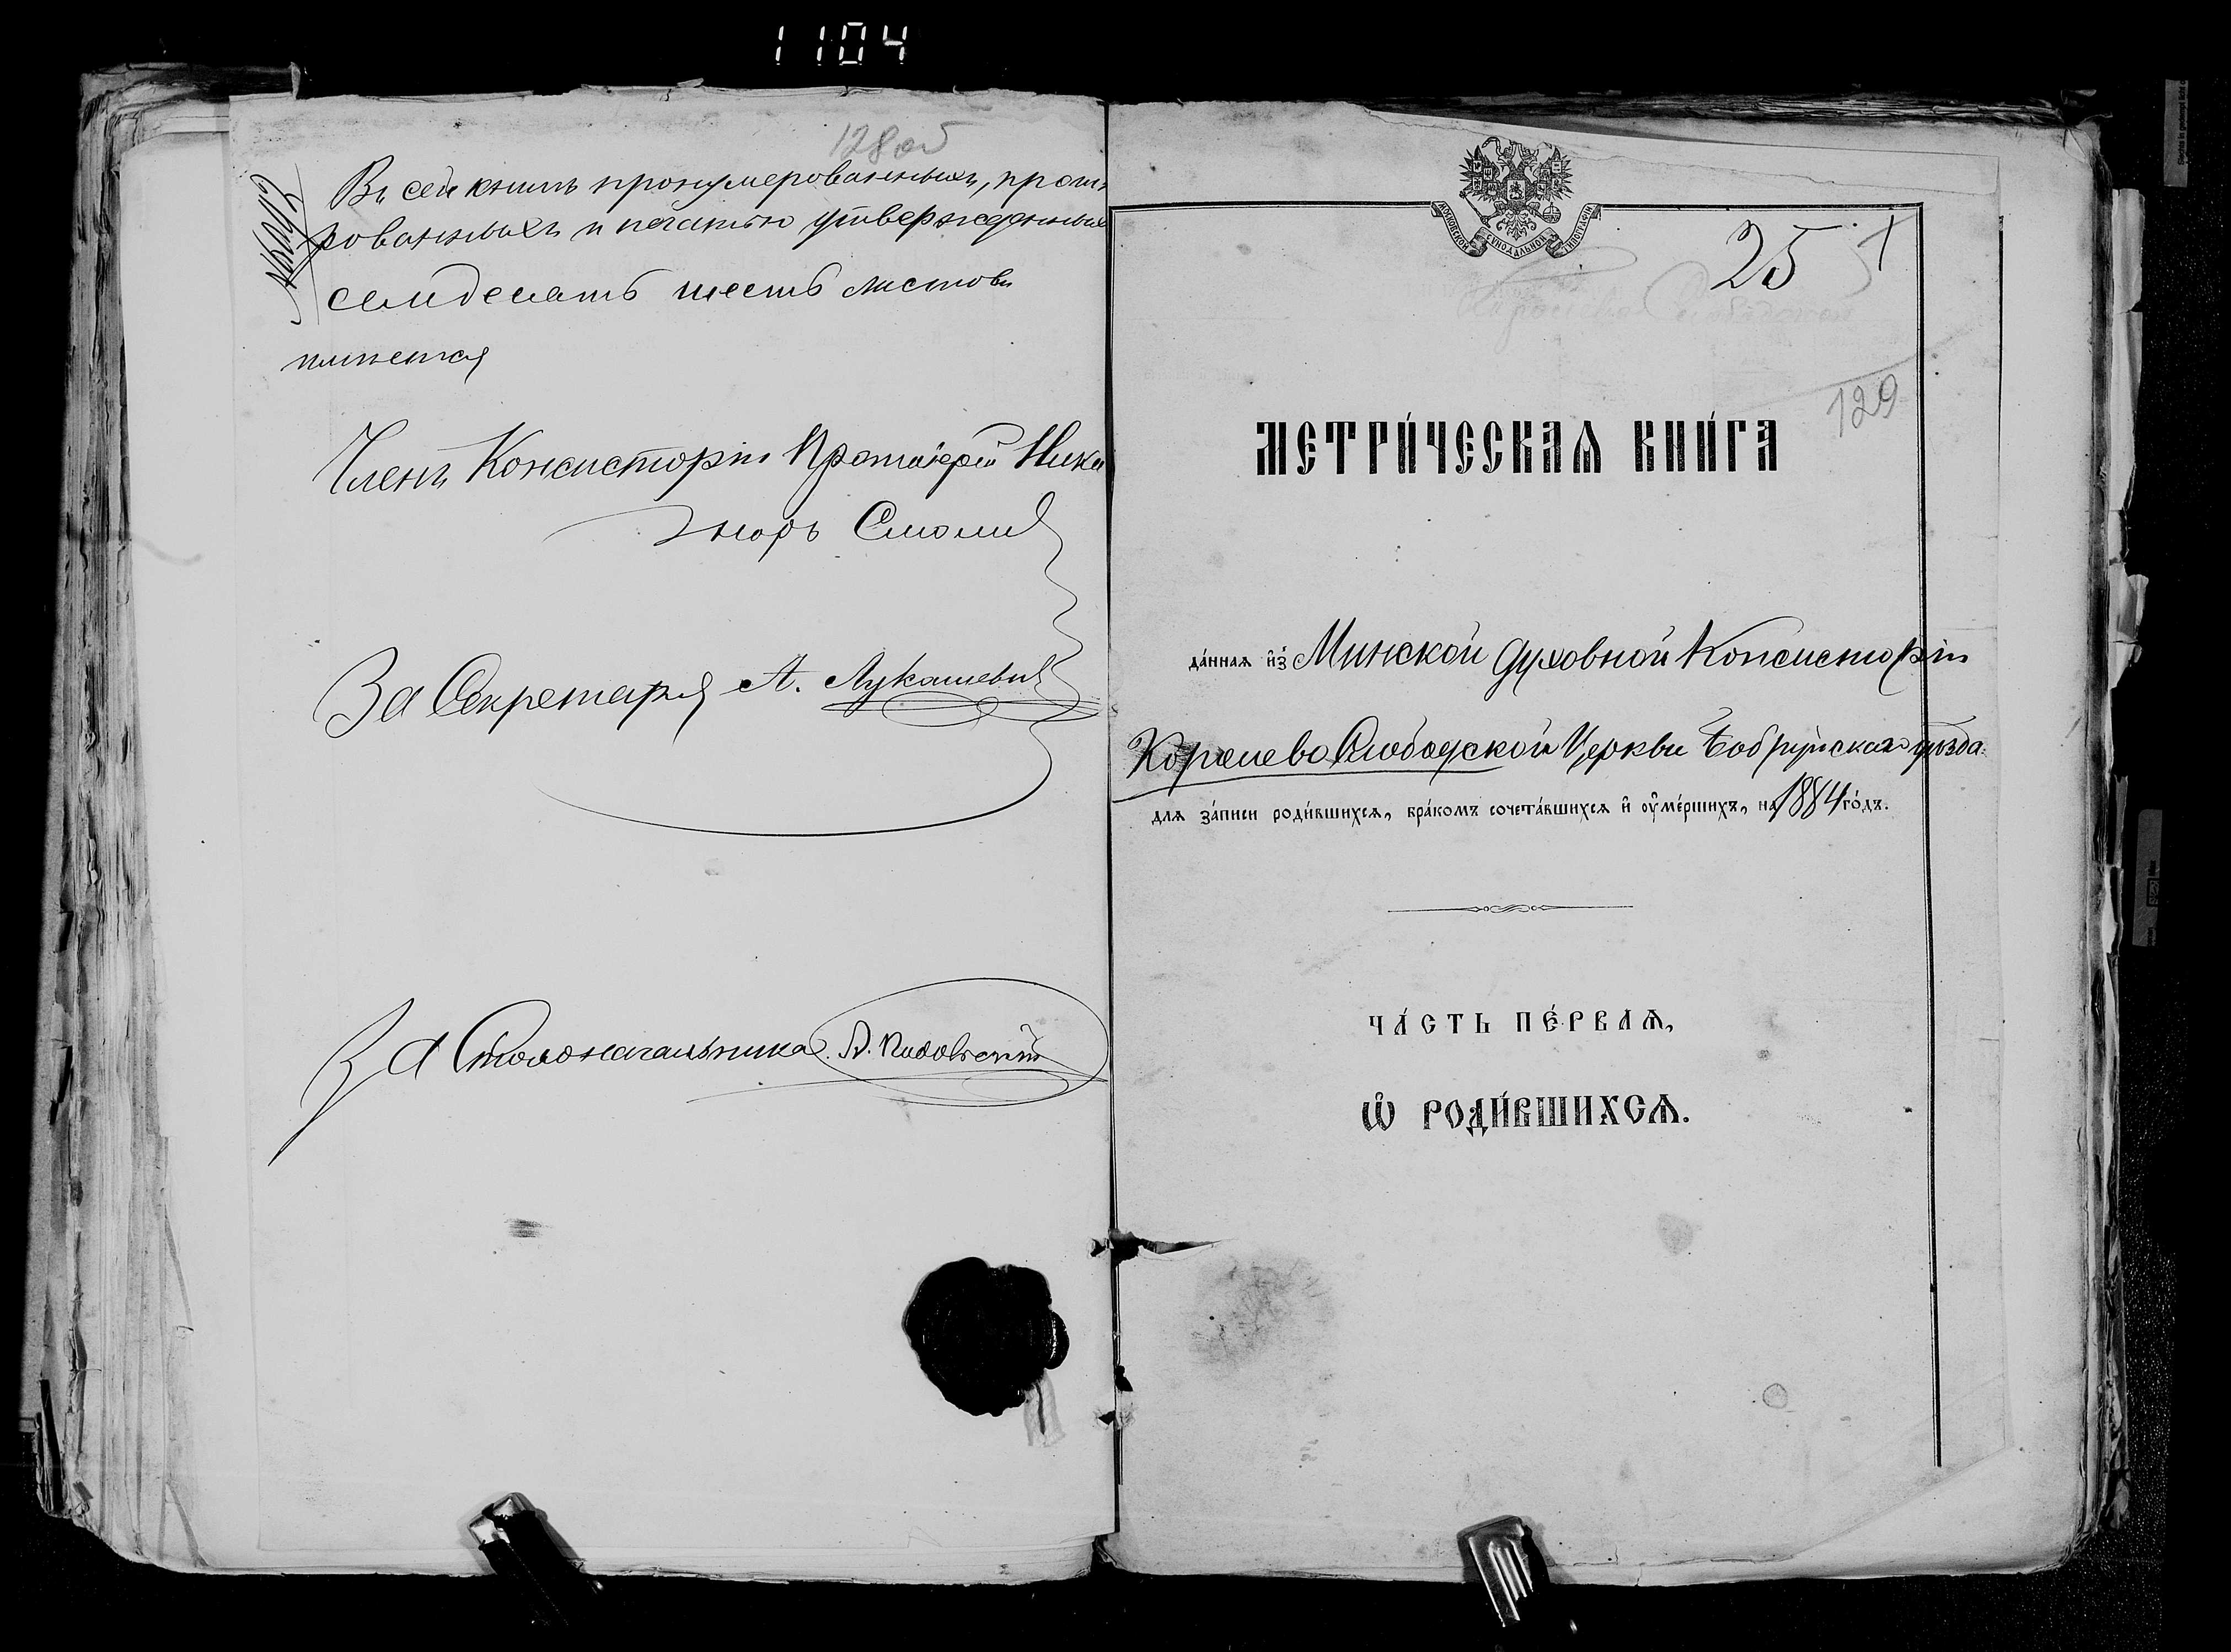 1104
128 об
Въ сей книгѣ пронумерованныхъ, прошну
рованныхъ и печатью утвержденныхъ
семдесятъ шесть листовъ
имѣется
Членъ Консисторіи Протоіерей Ника
норъ Смолич
За Секретаря А. Лукашевичъ
За Столоначальника
МОСКОВСКОЙ СѴНОДАЛЬНОЙ ТИПОГРАФІИ
25
129
МЕТРИ́ЧЕСКАѦ КНИ́ГА
да́ннаѧ и҆з̾ Минской Духовной Консисторіи
Королево Слободской Церкви Бобруйскаго уѣзда
длѧ за́писи роди́вшихсѧ, бра́комъ сочета́вшихсѧ и҆ ѹ҆ме́ршихъ, на 1884 го́дъ.
ЧА́СТЬ ПЕ́РВАѦ,
Ѽ РОДИ́ВШИХСѦ.